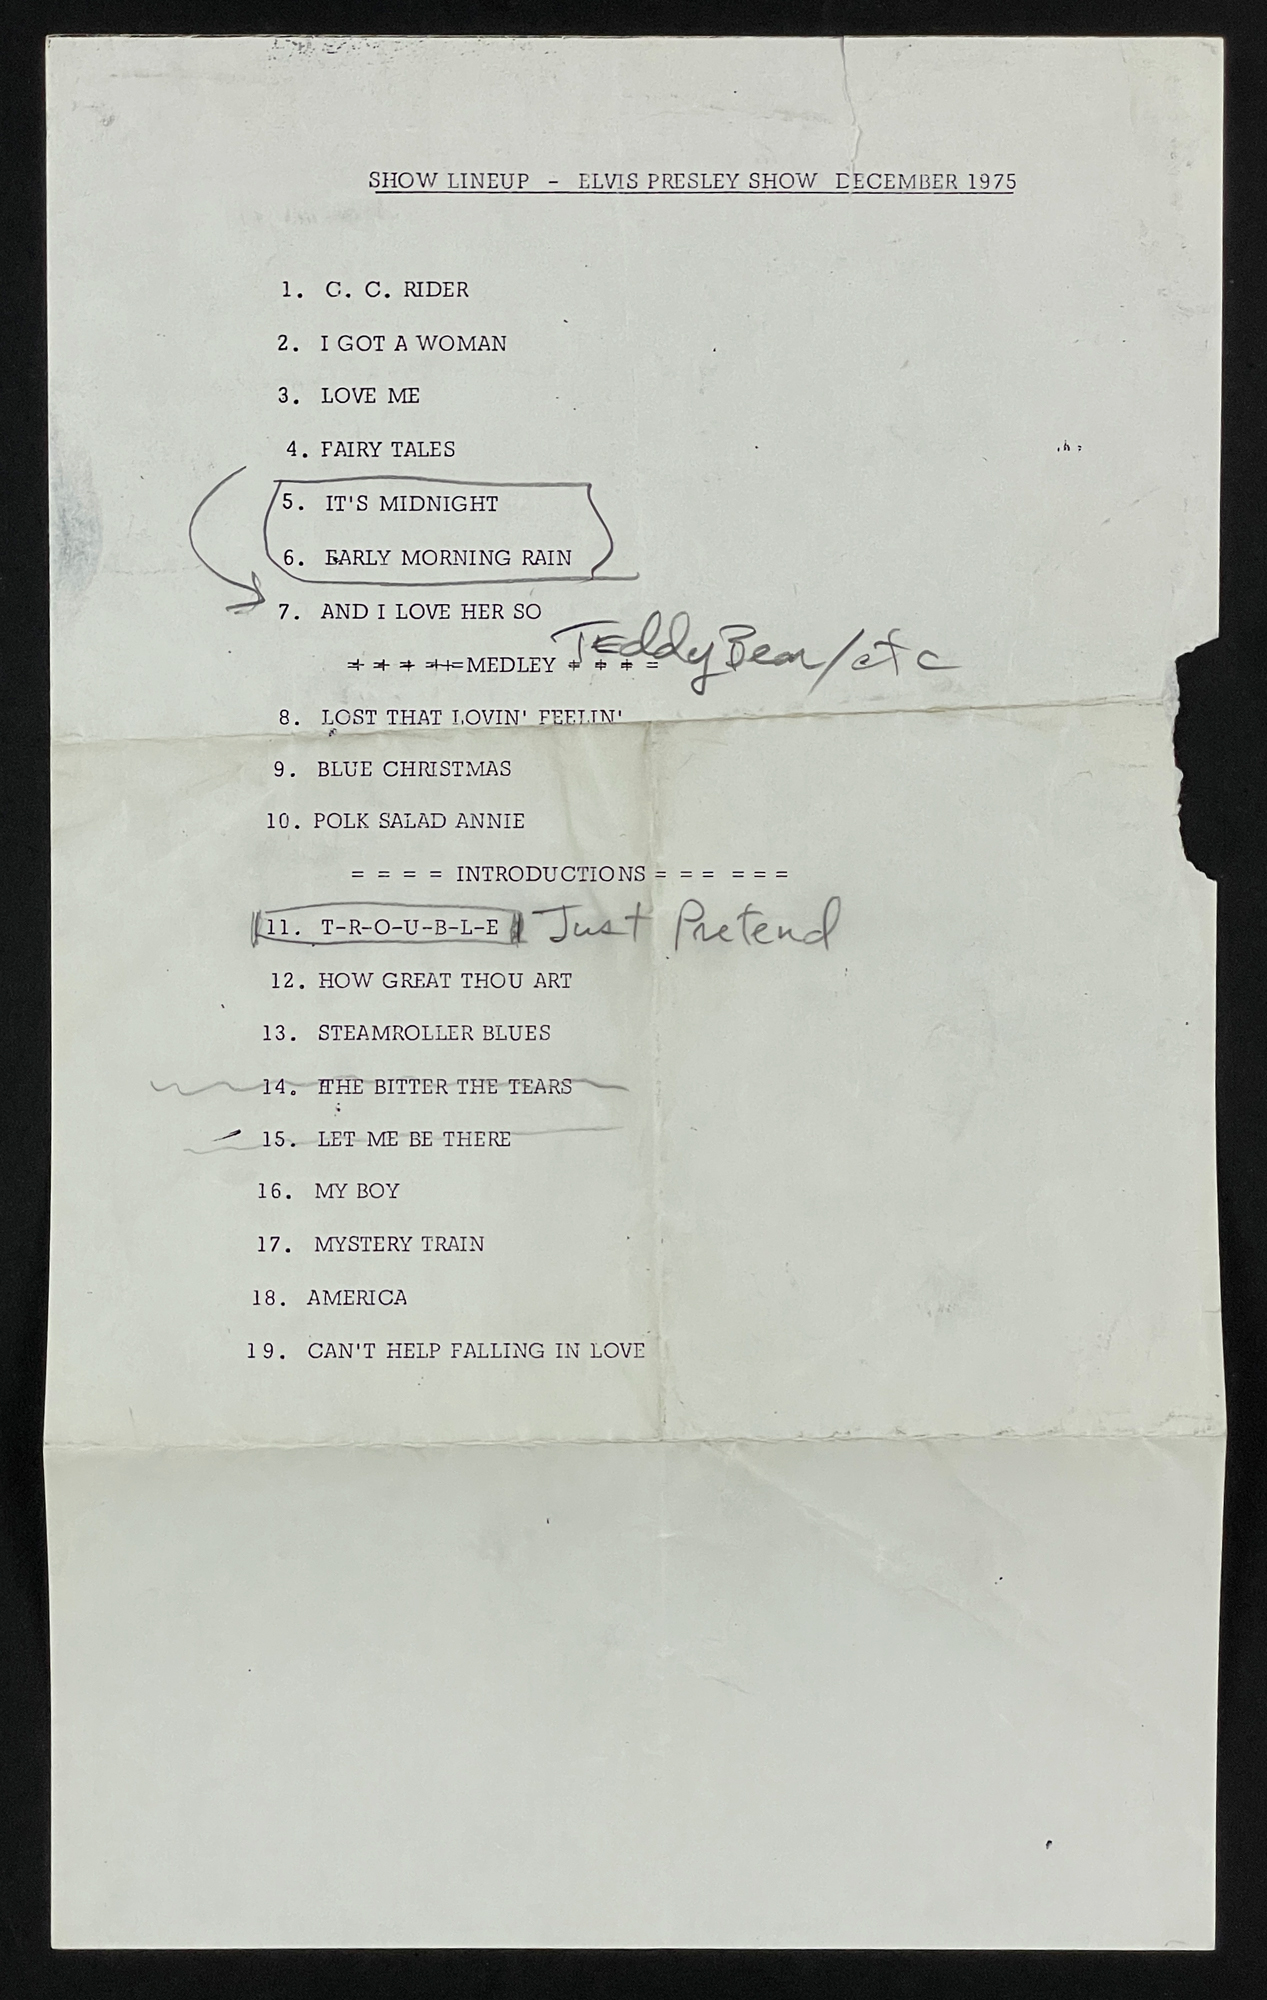 SHOW LINEUP - ELVIS PRESLEY SHOW DECEMBER 1975
1. C. C. RIDER
2. I GOT A WOMAN
3. LOVE ME
4. FAIRY TALES
5. IT'S MIDNIGHT
6. EARLY MORNING RAIN
7. AND I LOVE HER SO
Teddy Bear/etc
+ + + ++=MEDLEY + + + =
8. LOST THAT LOVIN' FEELIN'
9. BLUE CHRISTMAS
10. POLK SALAD ANNIE
= = = = INTRODUCTIONS = = = = = =
11. T-R-O-U-B-L-E Just Pretend
12. HOW GREAT THOU ART
13. STEAMROLLER BLUES
14. THE BITTER THE TEARS
15. LET ME BE THERE
16. MY BOY
17. MYSTERY TRAIN
18. AMERICA
19. CAN'T HELP FALLING IN LOVE